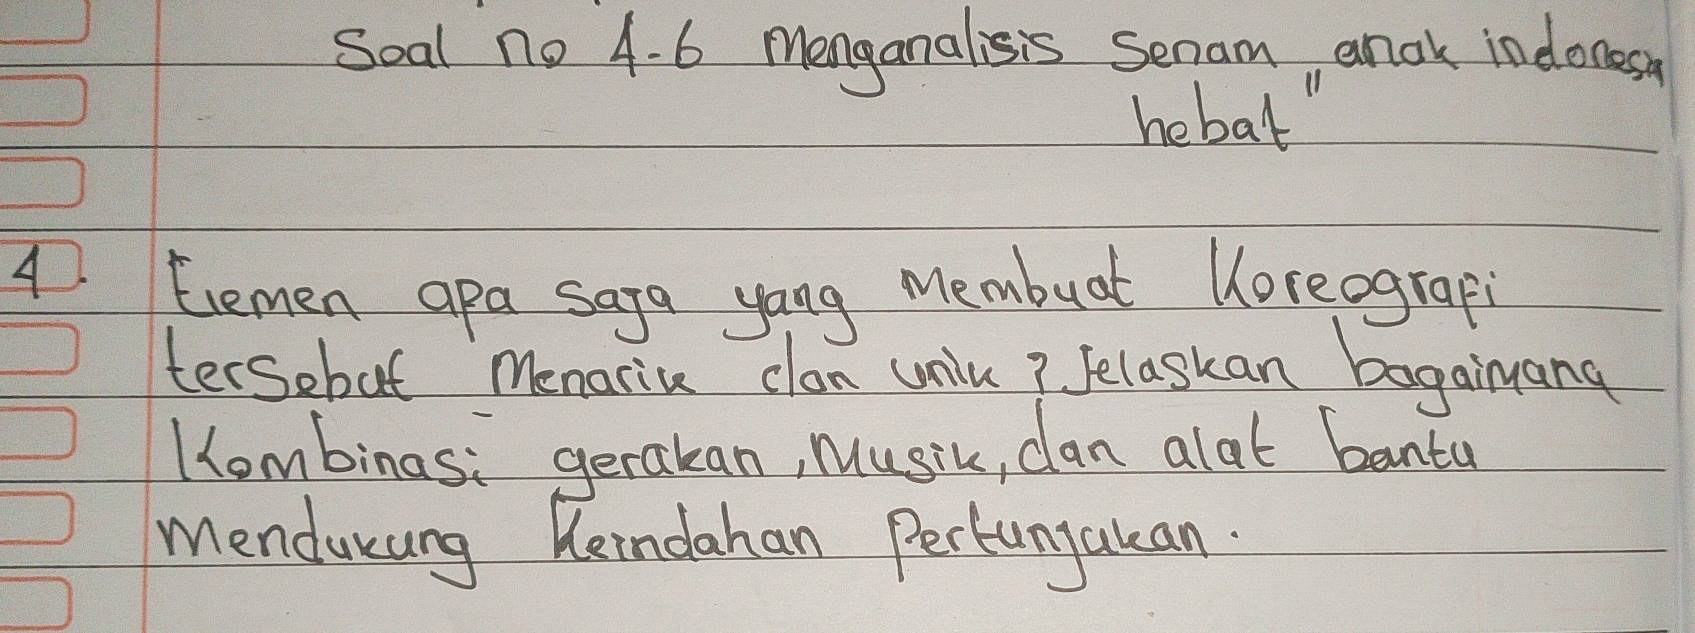 Soal no 4-6 Menganalisis Senam "anak indonesia
hebat"
4. Elemen apa saja yang Membuat Koreografi
tersebut Menarik dan unik ? Jelaskan bagaimana
Kombinasi gerakan, Musik, dan alat bantu
mendukung Keindahan Pertunjukan.